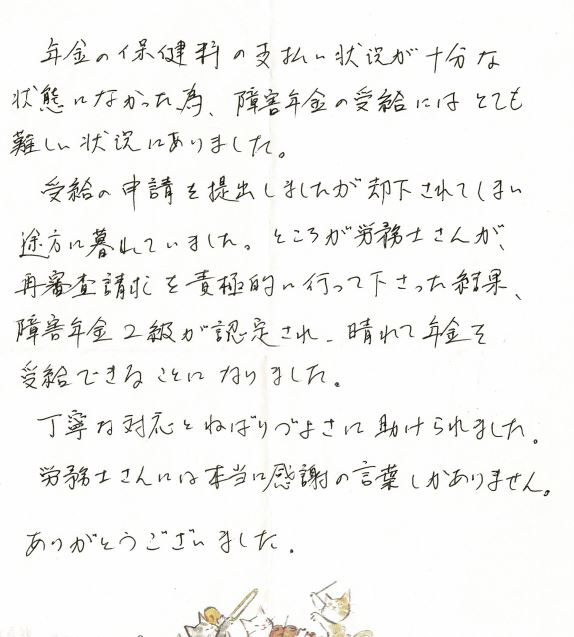 年金の保健料の支払い状況が十分な
状態になかった為、障害年金の受給にはとても
難しい状況にありました。
受給の申請を提出しましたが却下されてしまい
途方に暮れていました。ところが労務士さんが、
再審査請求を責極的に行って下さった結果、
障害年金2級が認定され、晴れて年金を
受給できることになりました。
丁寧な対応とねばりづよさに助けられました。
労務士さんには本当に感謝の言葉しかありません。
ありがとうございました。